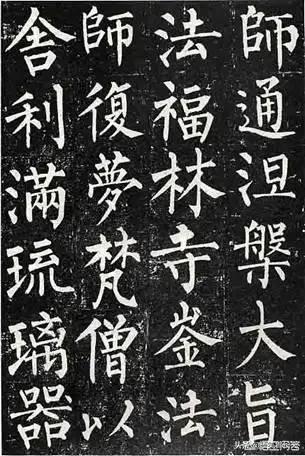 師通涅槃大旨
法福林寺崟法
師復夢梵僧以
舎利滿琉璃器
头条@悟空问答